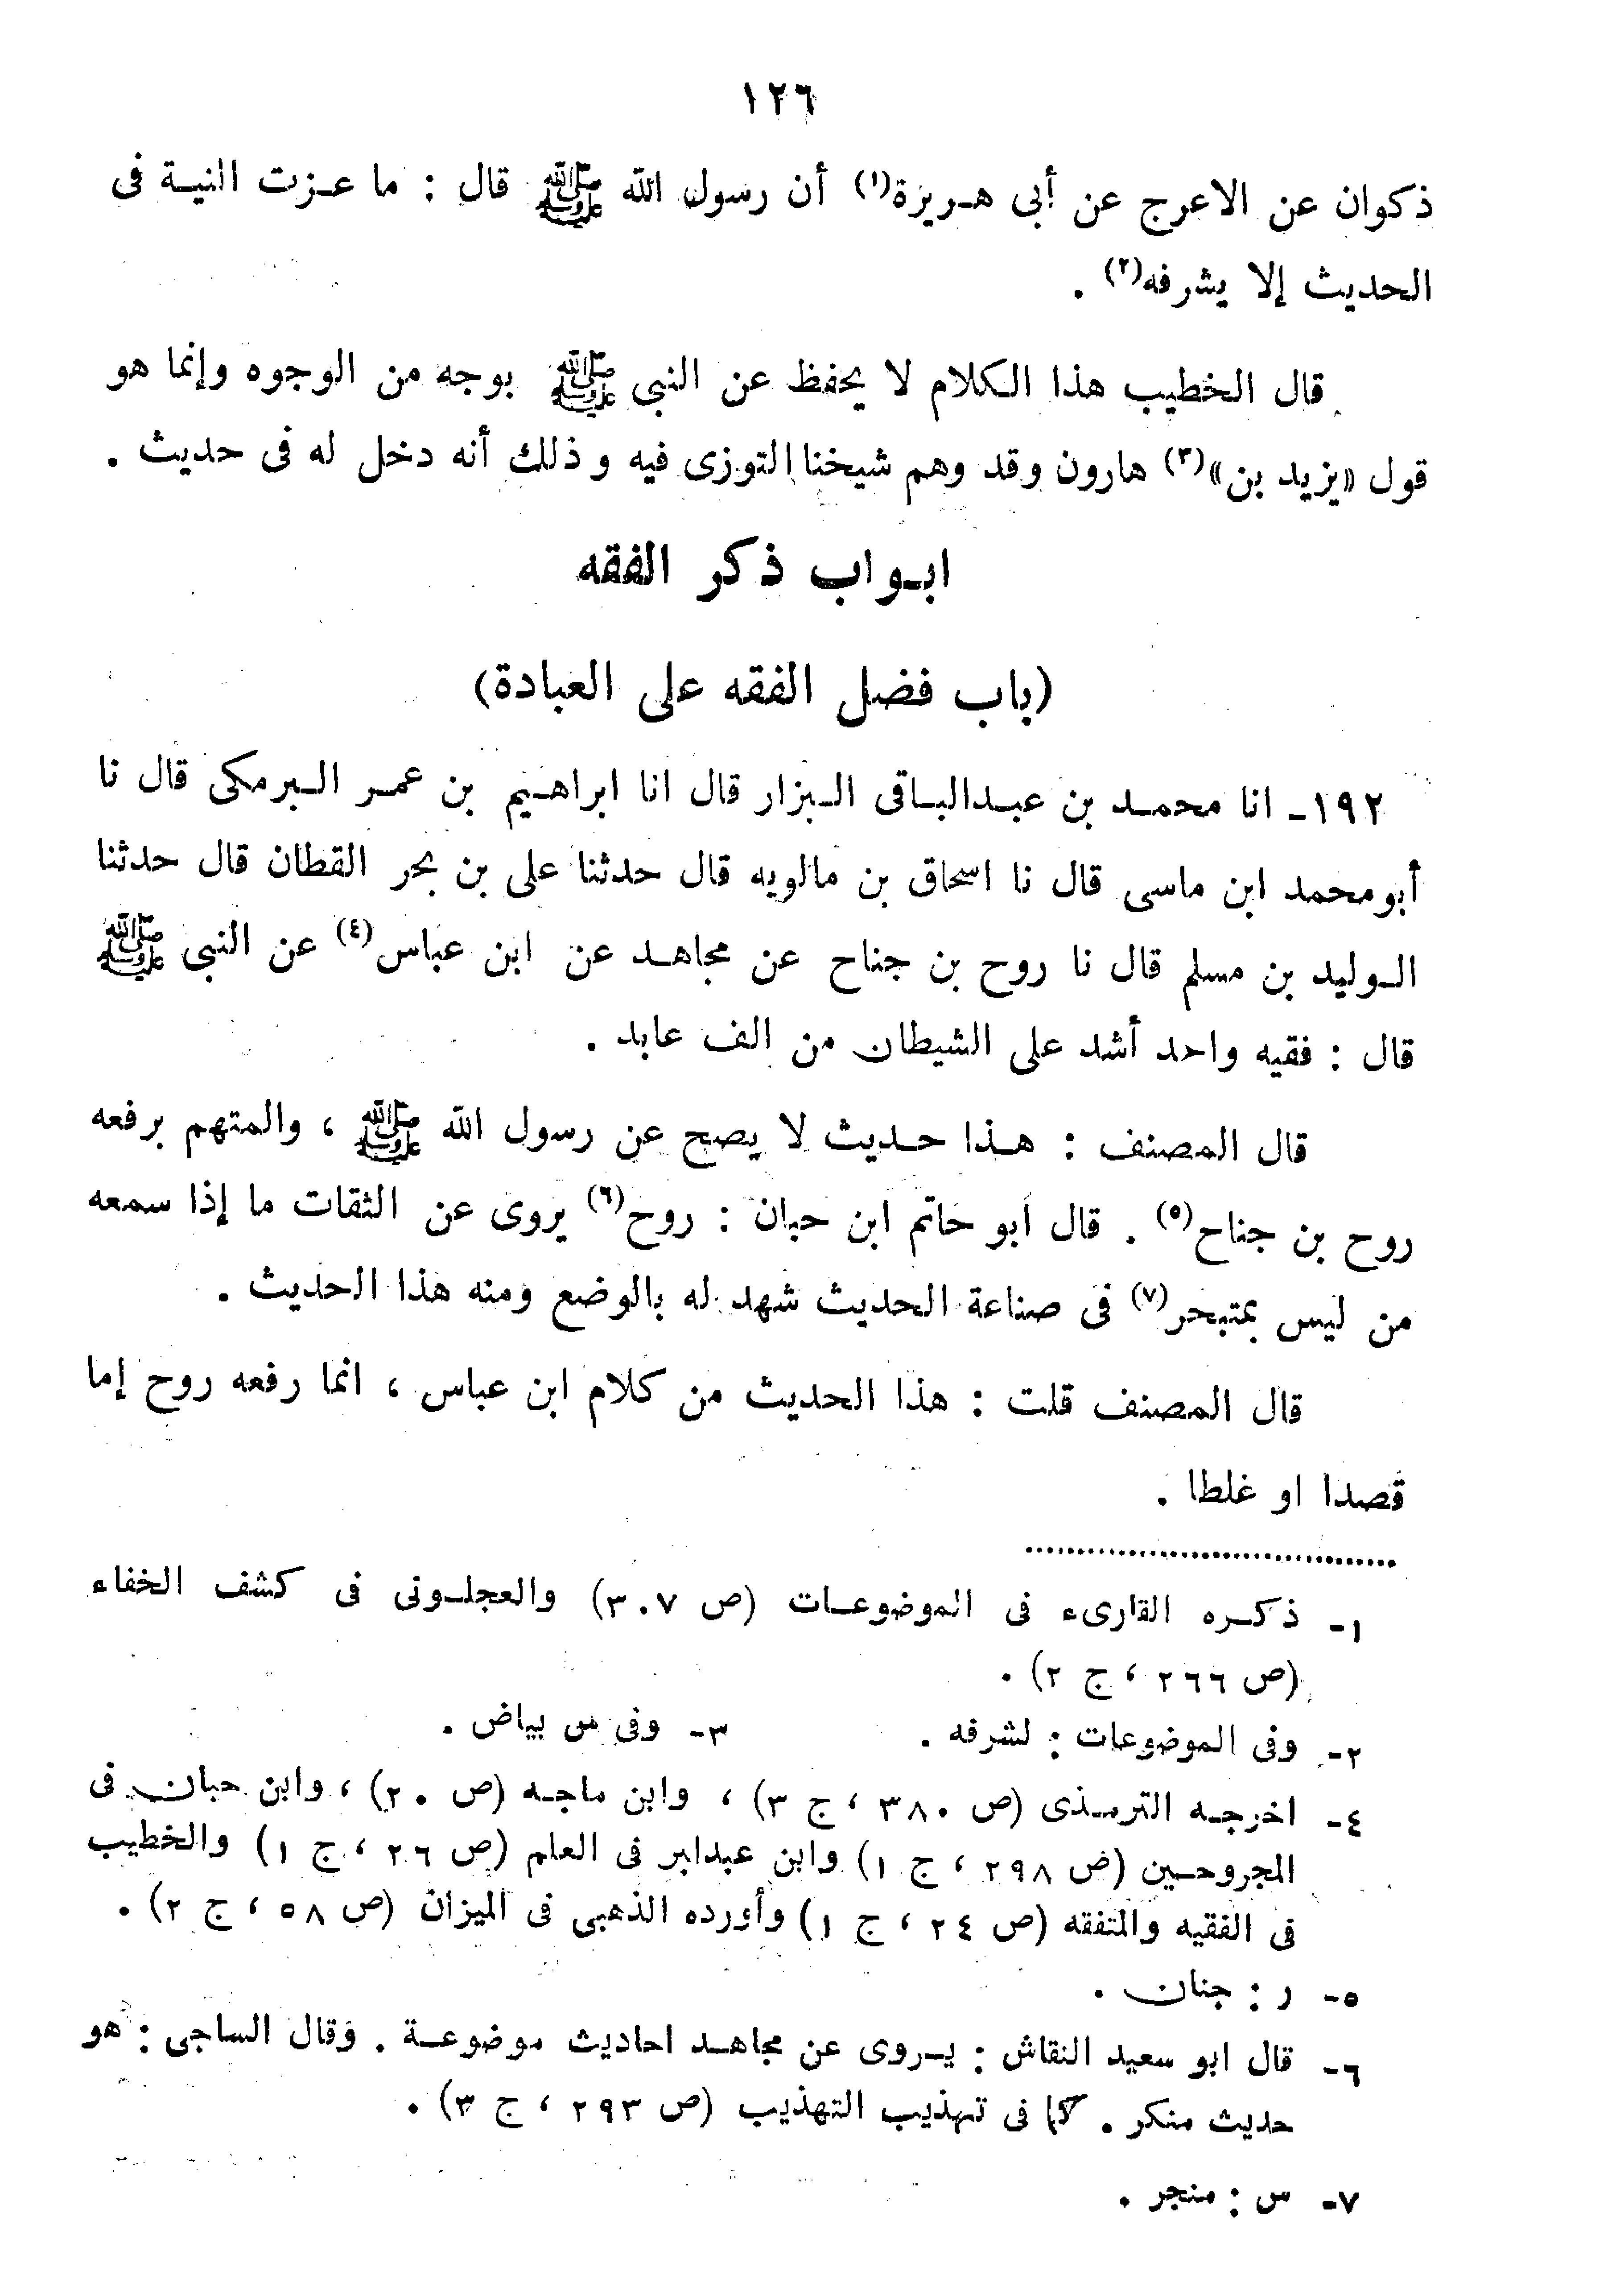 ١٢٦
ذكوان عن الاعرج عن أبى هـريزة(١) أن رسول الله ﷺ قال : ما عـزت النيـة فى
الحديث إلا يشرفه(٢) .
قال الخطيب هذا الكلام لا يحفظ عن النبى ﷺ بوجه من الوجوه وإنما هو
قول «يزيد بن»(٣) هارون وقد وهم شيخنا التوزى فيه وذلك أنه دخل له فى حديث .
ابـواب ذكر الفقه
(باب فضل الفقه على العبادة)
١٩٢ـ انا محمـد بن عبـدالبـاقى الـبزار قال انا ابراهـيم بن عمـر الـبرمكى قال نا
أبومحمد ابن ماسى قال نا اسحاق بن مالويه قال حدثنا على بن بحر القطان قال حدثنا
الـوليد بن مسلم قال نا روح بن جناح عن مجاهـد عن ابن عباس(٤) عن النبى ﷺ
قال : فقيه واحد أشد على الشيطان من الف عابد .
قال المصنف : هـذا حـديث لا يصح عن رسول الله ﷺ ، والمتهم برفعه
روح بن جناح(٥) . قال أبو حاتم ابن حبان : روح(٦) يروى عن الثقات ما إذا سمعه
من ليس بمتبحر(٧) فى صناعة الحديث شهد له بالوضع ومنه هذا الحديث .
قال المصنف قلت : هذا الحديث من كلام ابن عباس ، انما رفعه روح إما
قصدا او غلطا .
١ـ ذكـره القارىء فى الموضوعـات (ص ٣٠٧) والعجلـونى فى كشف الخفاء
(ص ٢٦٦ ، ج ٢) .
٢ـ وفى الموضوعات : لشرفه . ٣ـ وفى س بياض .
٤ـ اخرجـه الترمـذى (ص ٣٨٠ ، ج ٣) ، وابن ماجـه (ص ٢٠) ، وابن حبان فى
المجروحـين (ص ٢٩٨ ، ج ١) وابن عبدابر فى العلم (ص ٢٦ ، ج ١) والخطيب
فى الفقيه والمتفقه (ص ٢٤ ، ج ١) وأورده الذهبى فى الميزان (ص ٥٨ ، ج ٢) .
٥ـ ر : جنان .
٦ـ قال ابو سعيد النقاش : يـروى عن مجاهـد احاديث موضوعـة . وقال الساجى : هو
حديث منكر . كما فى تهذيب التهذيب (ص ٢٩٣ ، ج ٣) .
٧ـ س : منجر .